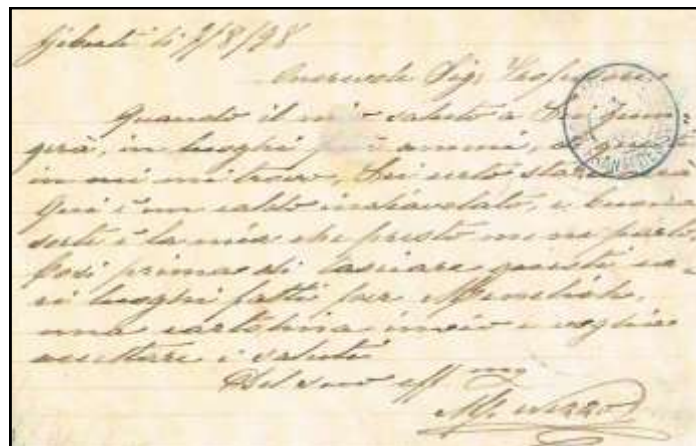 Gibuti li 7/8/98
Onorevole Sig. Professore
Quando il mio saluto a Lei giun=
gerà, in luoghi più ameni, di quei
in cui mi trovo, Lei certo starà
Qui è un caldo indiavolato, e buona
sorte è la mia che presto me ne parto
Così prima di lasciare questi ca=
ri luoghi fatti per Menelich,
una cartolina invio e voglia
accettare i saluti
Del suo aff mo